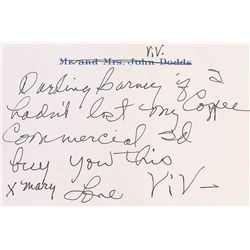 ViV.
Mr. and Mrs. John Dodds
Darling Barney if I
hadn't lost my Coffee
Commercial Id
buy you this
x Mary Love ViV-